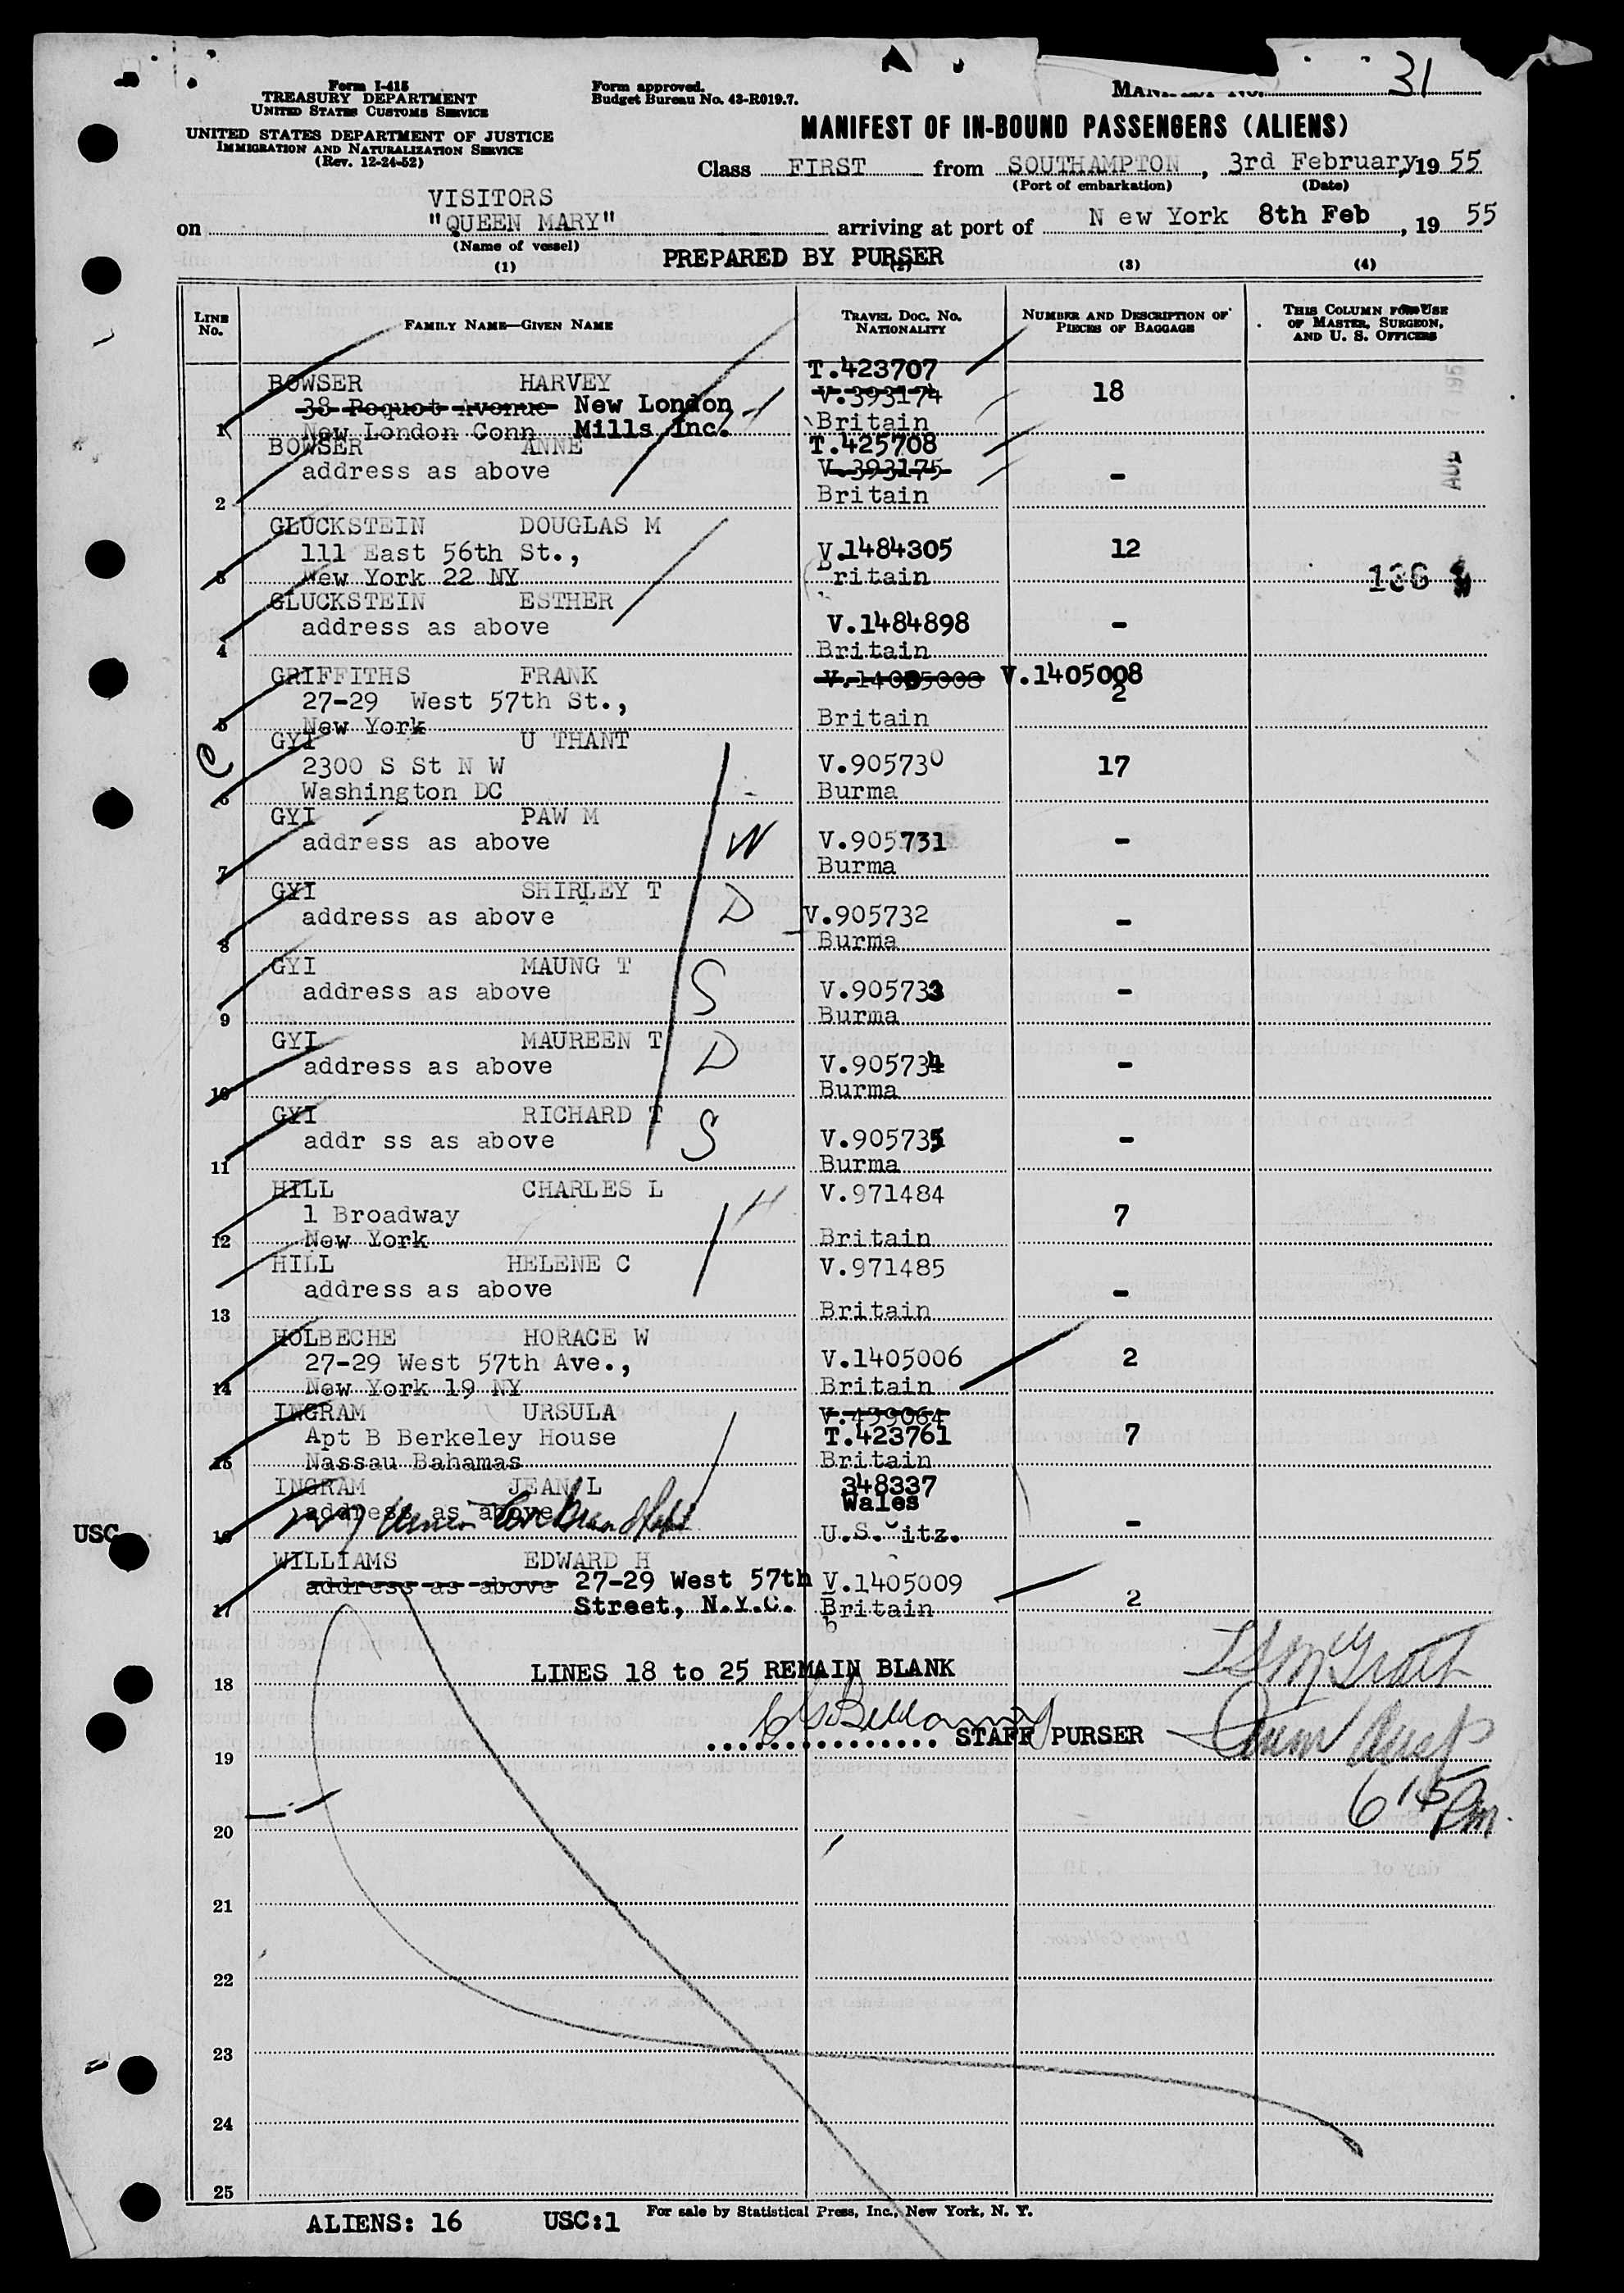 31
Form I-415
TREASURY DEPARTMENT
UNITED STATES CUSTOMS SERVICE
UNITED STATES DEPARTMENT OF JUSTICE
IMMIGRATION AND NATURALIZATION SERVICE
(Rev. 12-24-52)
Form approved.
Budget Bureau No. 43-R019.7.
MANIFEST OF IN-BOUND PASSENGERS (ALIENS)
Class FIRST from SOUTHAMPTON, 3rd February, 1955
(Port of embarkation) (Date)
VISITORS
on "QUEEN MARY" arriving at port of N ew York 8th Feb, 1955
(Name of vessel)
PREPARED BY PURSER
(1) (2) (3) (4)
LINE No. FAMILY NAME—GIVEN NAME TRAVEL DOC. NO. NATIONALITY NUMBER AND DESCRIPTION OF PIECES OF BAGGAGE THIS COLUMN FOR USE OF MASTER, SURGEON, AND U. S. OFFICERS
T.423707
BOWSER HARVEY V.393174 18
38 Pequot Avenue New London
1 New London Conn Mills Inc. Britain
BOWSER ANNE T.425708
address as above V.393175 -
2 Britain
GLUCKSTEIN DOUGLAS M
111 East 56th St., V.1484305 12
3 New York 22 NY Britain 136
GLUCKSTEIN ESTHER
address as above V.1484898 -
4 Britain
GRIFFITHS FRANK V.14005008 V.1405008
27-29 West 57th St., 2
5 New York Britain
C
GYI U THANT
2300 S St N W V.905730 17
6 Washington DC Burma
GYI PAW M
address as above W V.905731 -
7 Burma
GYI SHIRLEY T
address as above D V.905732 -
8 Burma
GYI MAUNG T
address as above S V.905733 -
9 Burma
GYI MAUREEN T
address as above D V.905734 -
10 Burma
GYI RICHARD T
addr ss as above S V.905735 -
11 Burma
HILL CHARLES L H V.971484
1 Broadway 7
12 New York Britain
HILL HELENE C V.971485
address as above -
13 Britain
HOLBECHE HORACE W
27-29 West 57th Ave., V.1405006 2
14 New York 19 NY Britain
INGRAM URSULA V.459064
Apt B Berkeley House T.423761 7
15 Nassau Bahamas Britain
INGRAM JEAN L 348337
address as above Wales
USC 16 U.S. itz. -
WILLIAMS EDWARD H
address as above 27-29 West 57th V.1405009
17 Street, N.Y.C. Britain 2
18 LINES 18 to 25 REMAIN BLANK
19 STAFF PURSER
6 15 Pm.
20
21
22
23
24
25
For sale by Statistical Press, Inc., New York, N. Y.
ALIENS: 16 USC:1